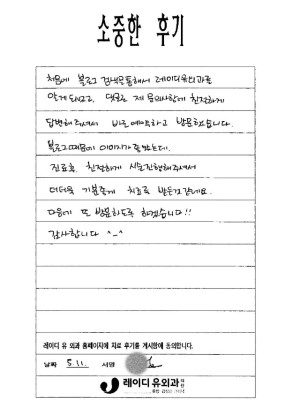 소중한 후기
처음에 블로그 검색을통해서 레이디유외과를
알게 되었고, 댓글로 제 문의사항에 친절하게
답변해주셔서 바로예약하고 방문하였습니다.
블로그때문에 이미지가 좋았는데,
진료후 친절하게 시술진행해주셔서
더더욱 기분좋게 치료를 받은것같네요.
다음에 또 방문하도록 하겠습니다!!
감사합니다 ^-^
레이디 유 외과 홈페이지에 치료 후기를 게시함에 동의합니다.
날짜 5.11. 서명
레이디유외과